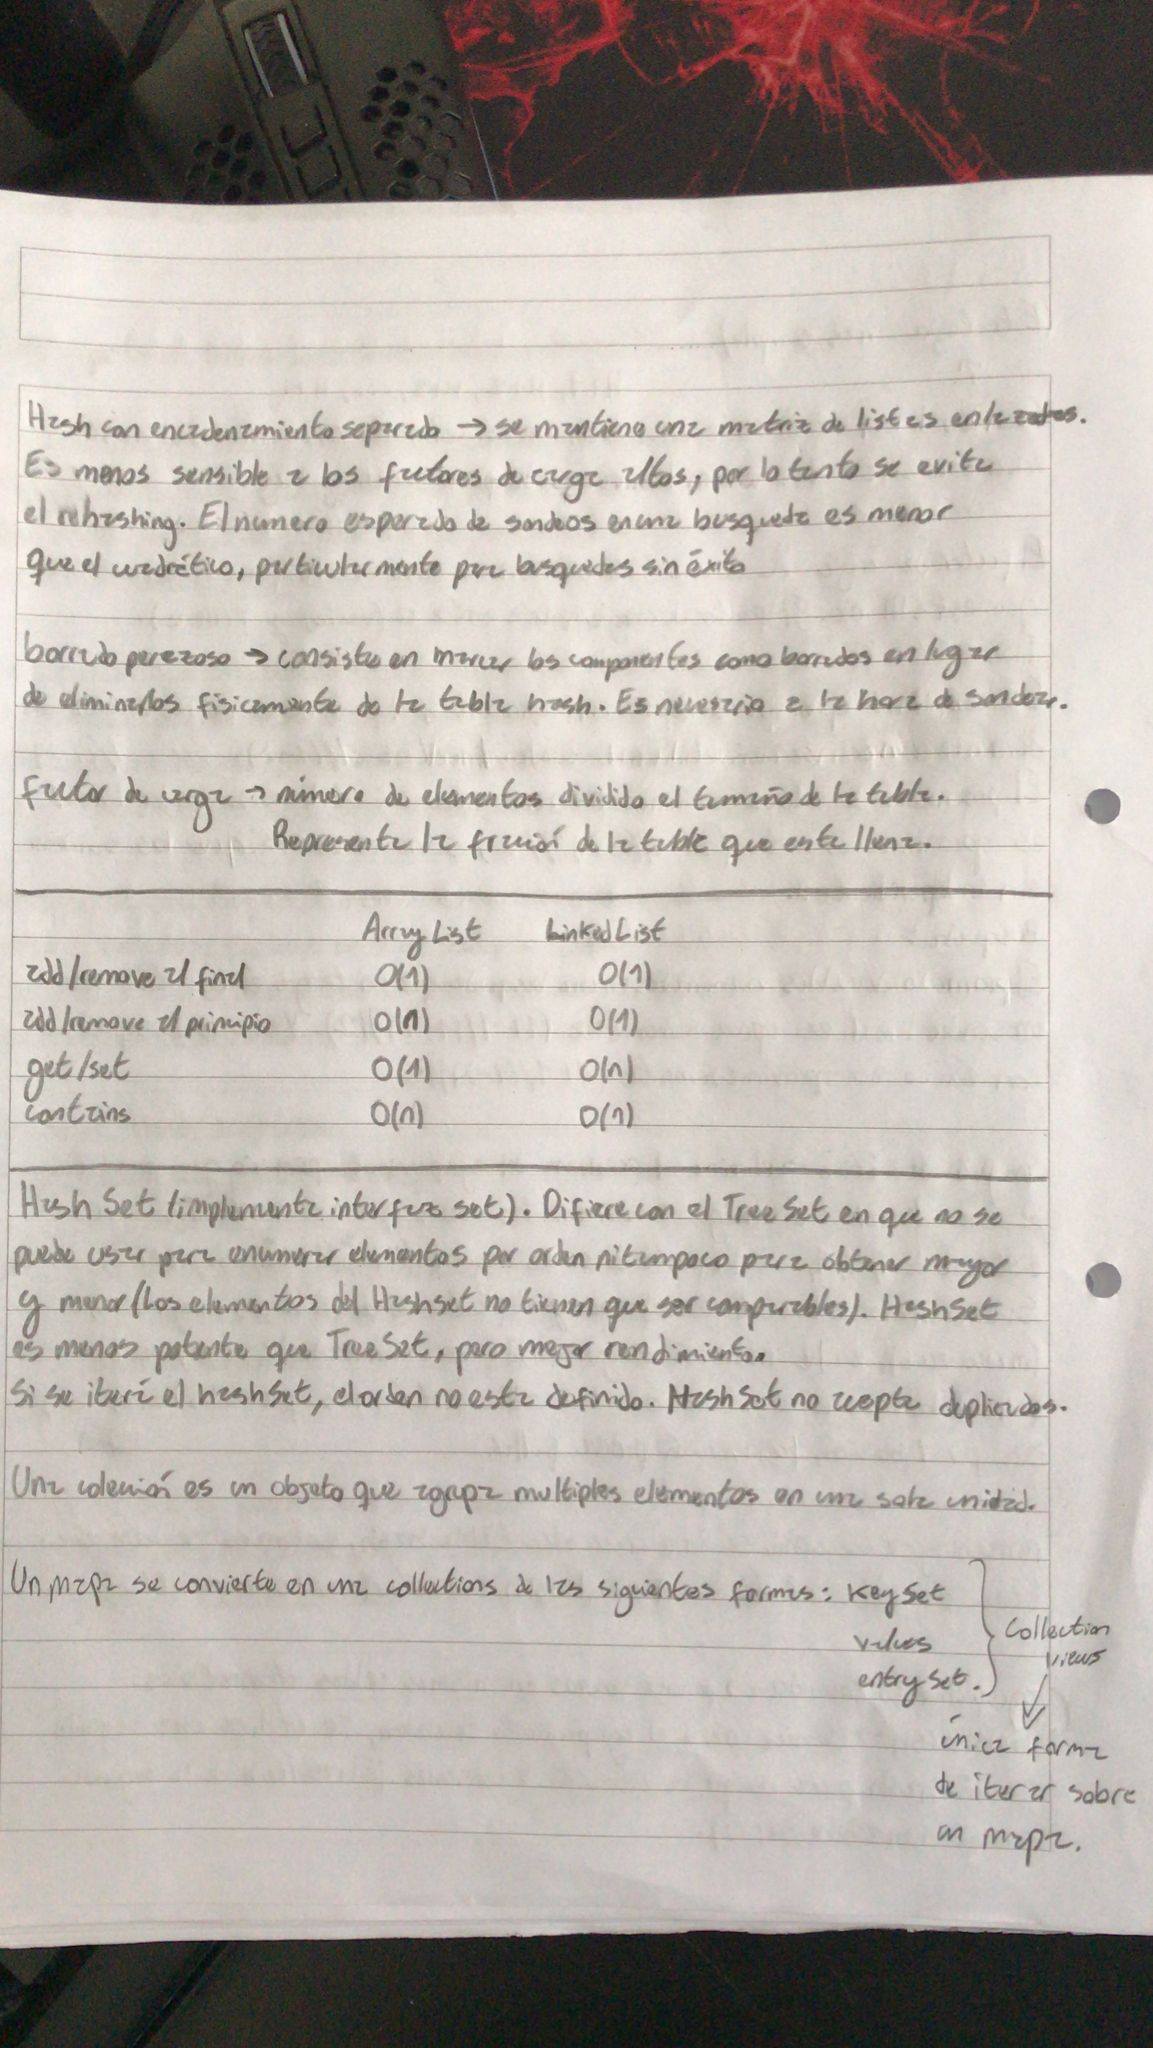 Hash con encadenamiento separado → se mantiene una matriz de listas enlazadas.
Es menos sensible a los factores de carga altos, por lo tanto se evita
el rehashing. El numero esperado de sondeos en una busqueda es menor
que el cuadrático, particularmente para busquedas sin éxito
borrado perezoso → consiste en marcar los componentes como borrados en lugar
de eliminarlos fisicamente de la tabla hash. Es necesario a la hora de sondear.
factor de carga → número de elementos dividido el tamaño de la tabla.
Representa la fracción de la tabla que esta llena.
ArrayList LinkedList
add/remove al final O(1) O(1)
add/remove al principio O(n) O(1)
get/set O(1) O(n)
contains O(n) O(n)
Hash Set (implementa interfaz set). Difiere con el TreeSet en que no se
puede usar para enumerar elementos por orden ni tampoco para obtener mayor
y menor (Los elementos del Hashset no tienen que ser comparables). HashSet
es menos potente que TreeSet, pero mejor rendimiento.
Si se iterá el hashSet, el orden no esta definido. HashSet no acepta duplicados.
Una colección es un objeto que agrupa multiples elementos en una sola unidad.
Un mapa se convierte en una collections de las siguientes formas: KeySet
values
entrySet.
Collection
views
única forma
de iterar sobre
un mapa.